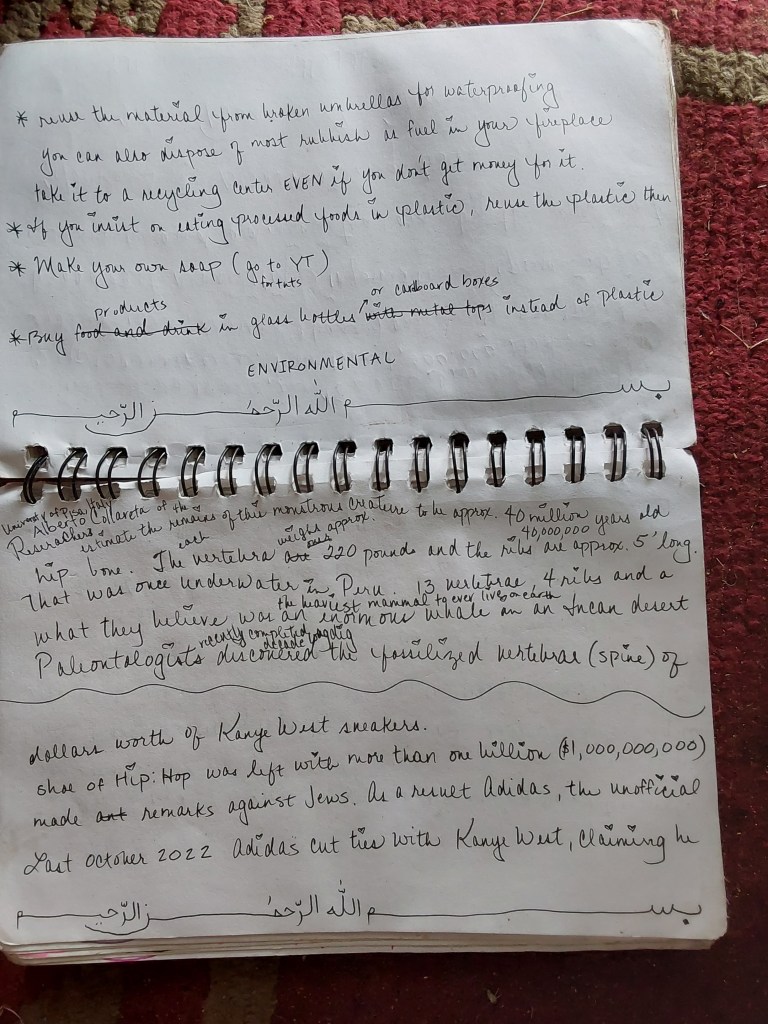 بسم الله الرّحمٰن الرّحيم
Last October 2022 Adidas cut ties with Kanye West, claiming he
made ant remarks against Jews. As a result Adidas, the unofficial
shoe of Hip:Hop was left with more than one billion ($1,000,000,000)
dollars worth of Kanye West sneakers.
Paleontologists discovered the fossilized vertebrae (spine) of
recently completed decade long dig
what they believe was an enormous whale in an Incan desert
the heaviest mammal to ever live on earth
That was once underwater in Peru. 13 vertebrae, 4 ribs and a
hip bone. The vertebra are 220 pounds and the ribs are approx. 5' long.
each weighs approx.
40,000,000
Researchers estimate the remains of this monstrous creature to be approx. 40 million years old
Alberto Collareta of the
University of Pisa, Italy
بسم الله الرّحمٰن الرّحيم
ENVIRONMENTAL
* Buy food and drink in glass bottles with metal tops instead of plastic
products
or cardboard boxes
* Make your own soap (go to YT)
for tuts
* If you insist on eating processed foods in plastic, reuse the plastic then
take it to a recycling center EVEN if you don't get money for it.
you can also dispose of most rubbish as fuel in your fireplace
* reuse the material from broken umbrellas for waterproofing